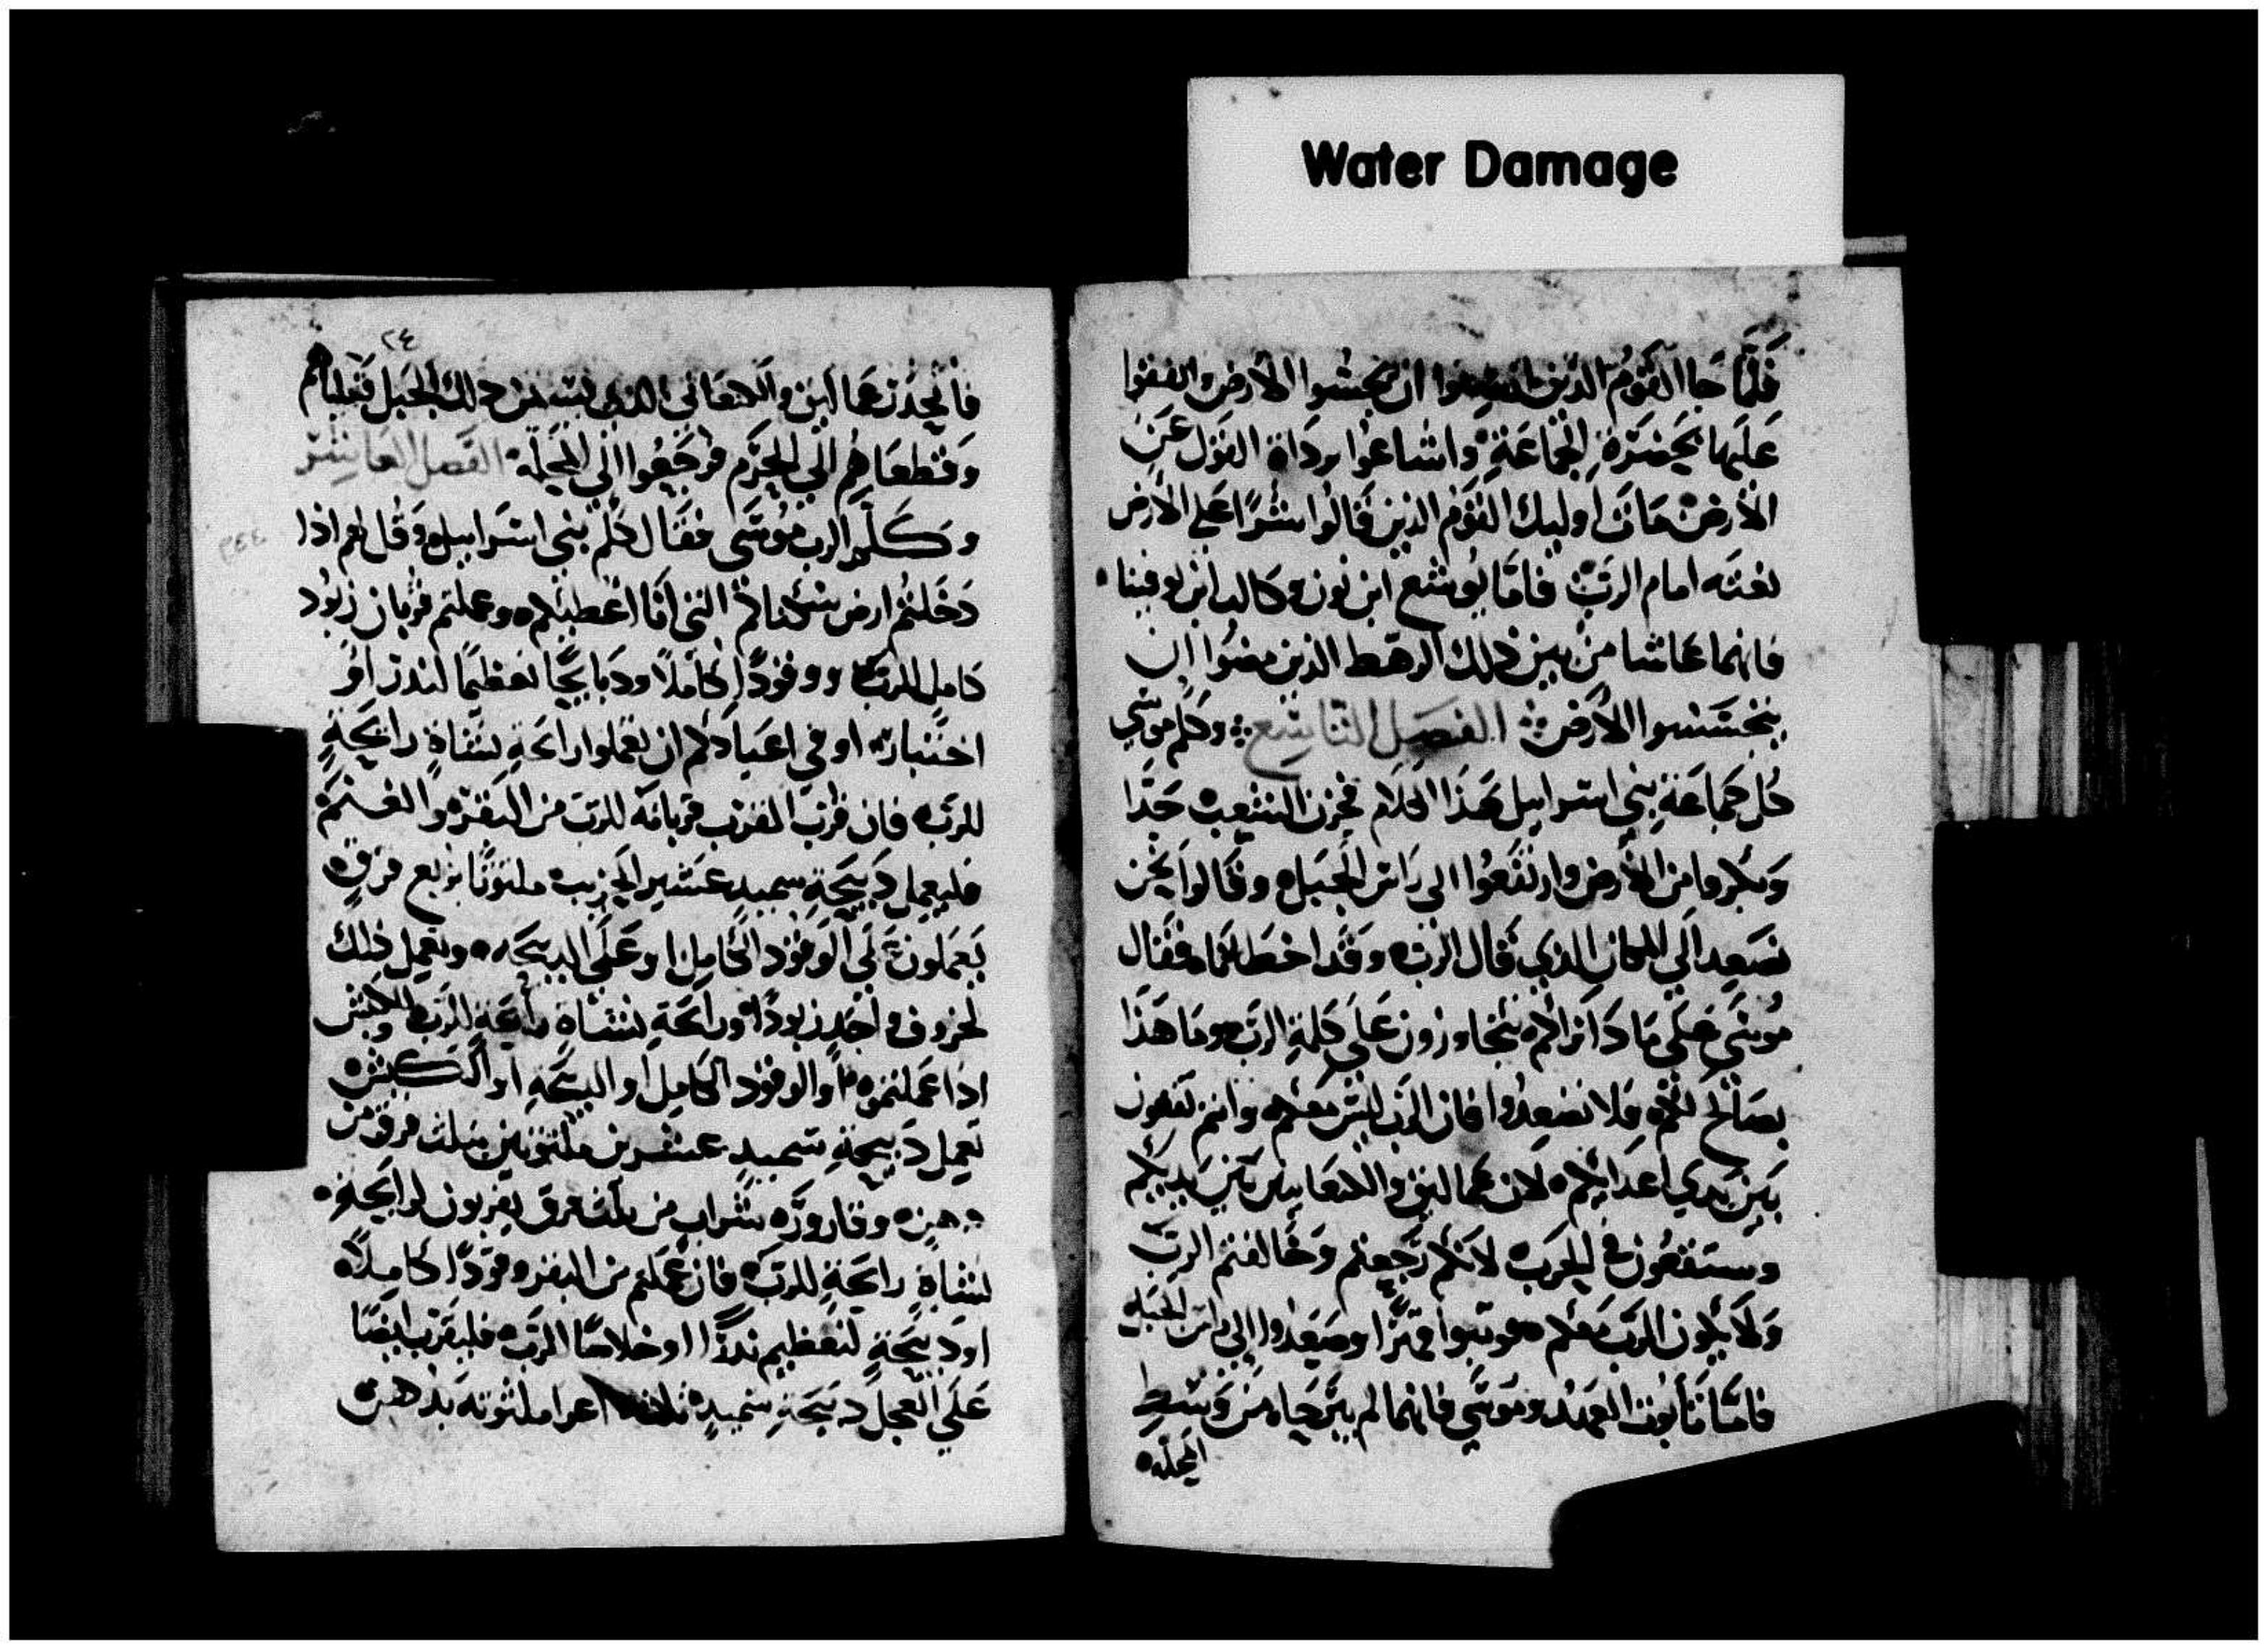 Water Damage
فلما جا القوم الذين انتدبوا ان يجسوا الارض والفقوا
عليها بحضرة الجماعة واشاعوا برداة القول عن
الارض مات اوليك القوم الذين قالوا شرا على الارض
بغته امام الرب فاما يوشع ابن نون وكالب ابن يوفينا
فانهما عاشا من بين ذلك الرهط الذين مضوا ان
يتجسسوا الارض الفصل التاسع وكلم موسي
كل جماعة بني اسراييل هذا الكلام فحزن الشعب جدا
وبكروا من الارض وارتفعوا الي راس الجبل وقالوا نحن
نصعد الي المكان الذي قال الرب وقد اخطانا فقال
موسي علي ما ذا انتم تتجاوزون علي كلمة الرب وما هذا
بصالح لكم فلا تصعدوا فان الرب ليس معكم وانتم تقعون
بين يدي اعدايكم لان عمالیق والكنعانيين بين يديكم
وستقعون في الحرب لانكم رجعتم وخالفتم الرب
ولا يكون الرب معكم فوثبوا وصعدوا الي راس الجبل
فاما تابوت العهد وموسي فانهما لم يبرحا من وسط
المحله
٢٤
فانحدر عماليق والكنعاني الذي من ذلك الجبل فقتلهم
وقطعاهم الي الحرم فرجعوا الي المحلة الفصل العاشر
وكلم الرب موسي فقال كلم بني اسراييل وقل لهم اذا
٢٤٤
دخلتم ارض سكناكم التي انا اعطيكم وعملتم قربان زبود
كامل للرب ووقودا كاملا وذبايحا تعظيما لنذر او
اختياره او في اعيادكم ان تعملوا رايحة لنقاة رايحة
للرب فان قرب المقرب قربانه للرب من البقر والغنم
فليعمل ذبيحة سميد عشير الجريب ملتوتا بربع فرق
يعملون علي الوقود الكامل او علي الذبيحه وتعمل ذلك
لخروف واحد زبودا ورايحة لنقاة رايحة للرب والكبش
اذا عملتموه او الوقود الكامل او الذبيحة او الكبش
تعمل ذبيحة سميد عشرين ملتوتين بثلث فرق من
دهن وقاروره شراب من ثلث فرق يقربون لرايحة
لنقاة رايحة للرب فان عملتم من البقر وقودا كاملا
او ذبيحة لتعظيم نذرا او خلاصا للرب فليقرب ايضا
علي العجل ذبيحة سميد ثلاثة اعشرا ملتوته بدهن